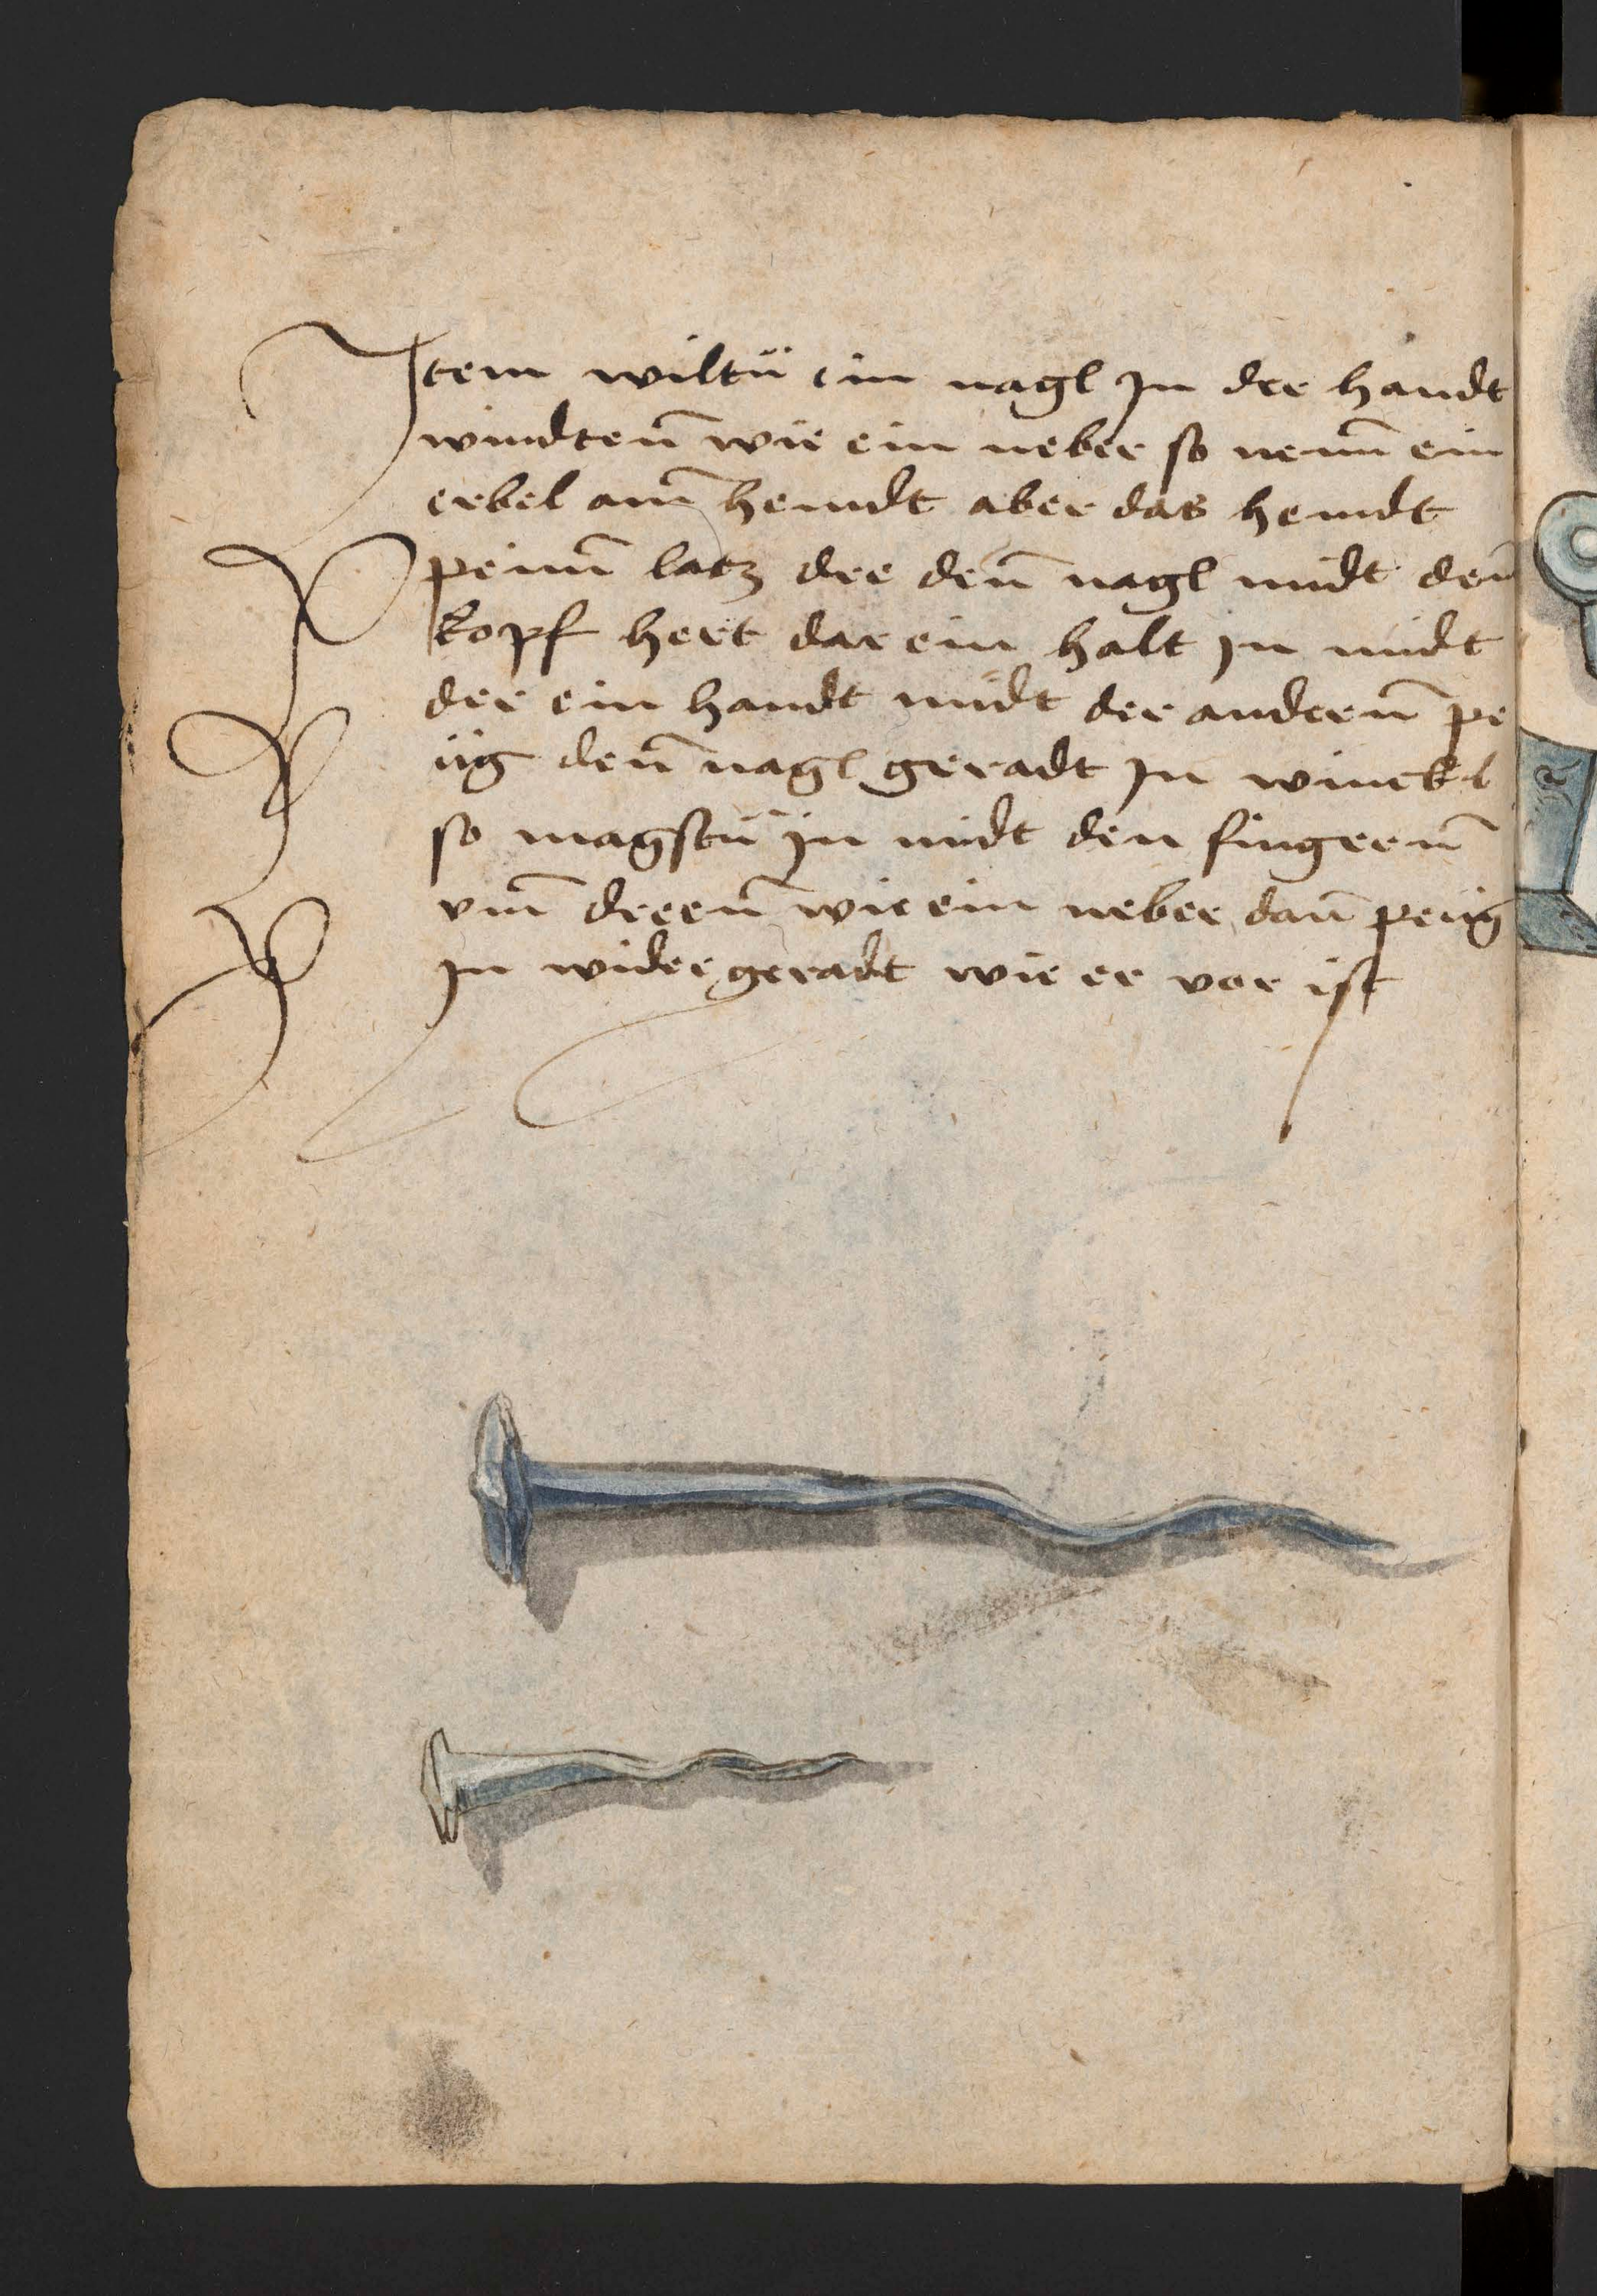 Item wiltu ein nagl Jn der handt
windtenn̄ wie ein neber so nemm̄ ein
erbel am̄ hemdt aber das hemdt
peim̄ latz dre den̄ nagl midt den̄
kopf hert dar ein halt jn midt
der ein handt midt der anderen̄ pe
üg den̄ nagl geradt Jn winckl
so magstu jn midt den fingeren̄
vm̄ dreen̄ wie ein neber dan̄ peüg
Jn wider geradt wie er vor ist